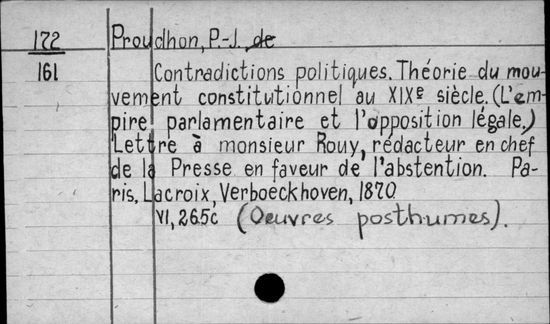 172 Proudhon, P.-J. de
161 Contradictions politiques. Théorie du mou-
vement constitutionnel au XIXe siècle. (L'em-
pire parlamentaire et l'opposition légale.)
Lettre à monsieur Rouy, rédacteur en chef
de la Presse en faveur de l'abstention. Pa-
ris, Lacroix, Verboeckhoven, 1870
VI, 265c (Oeuvres posthumes).